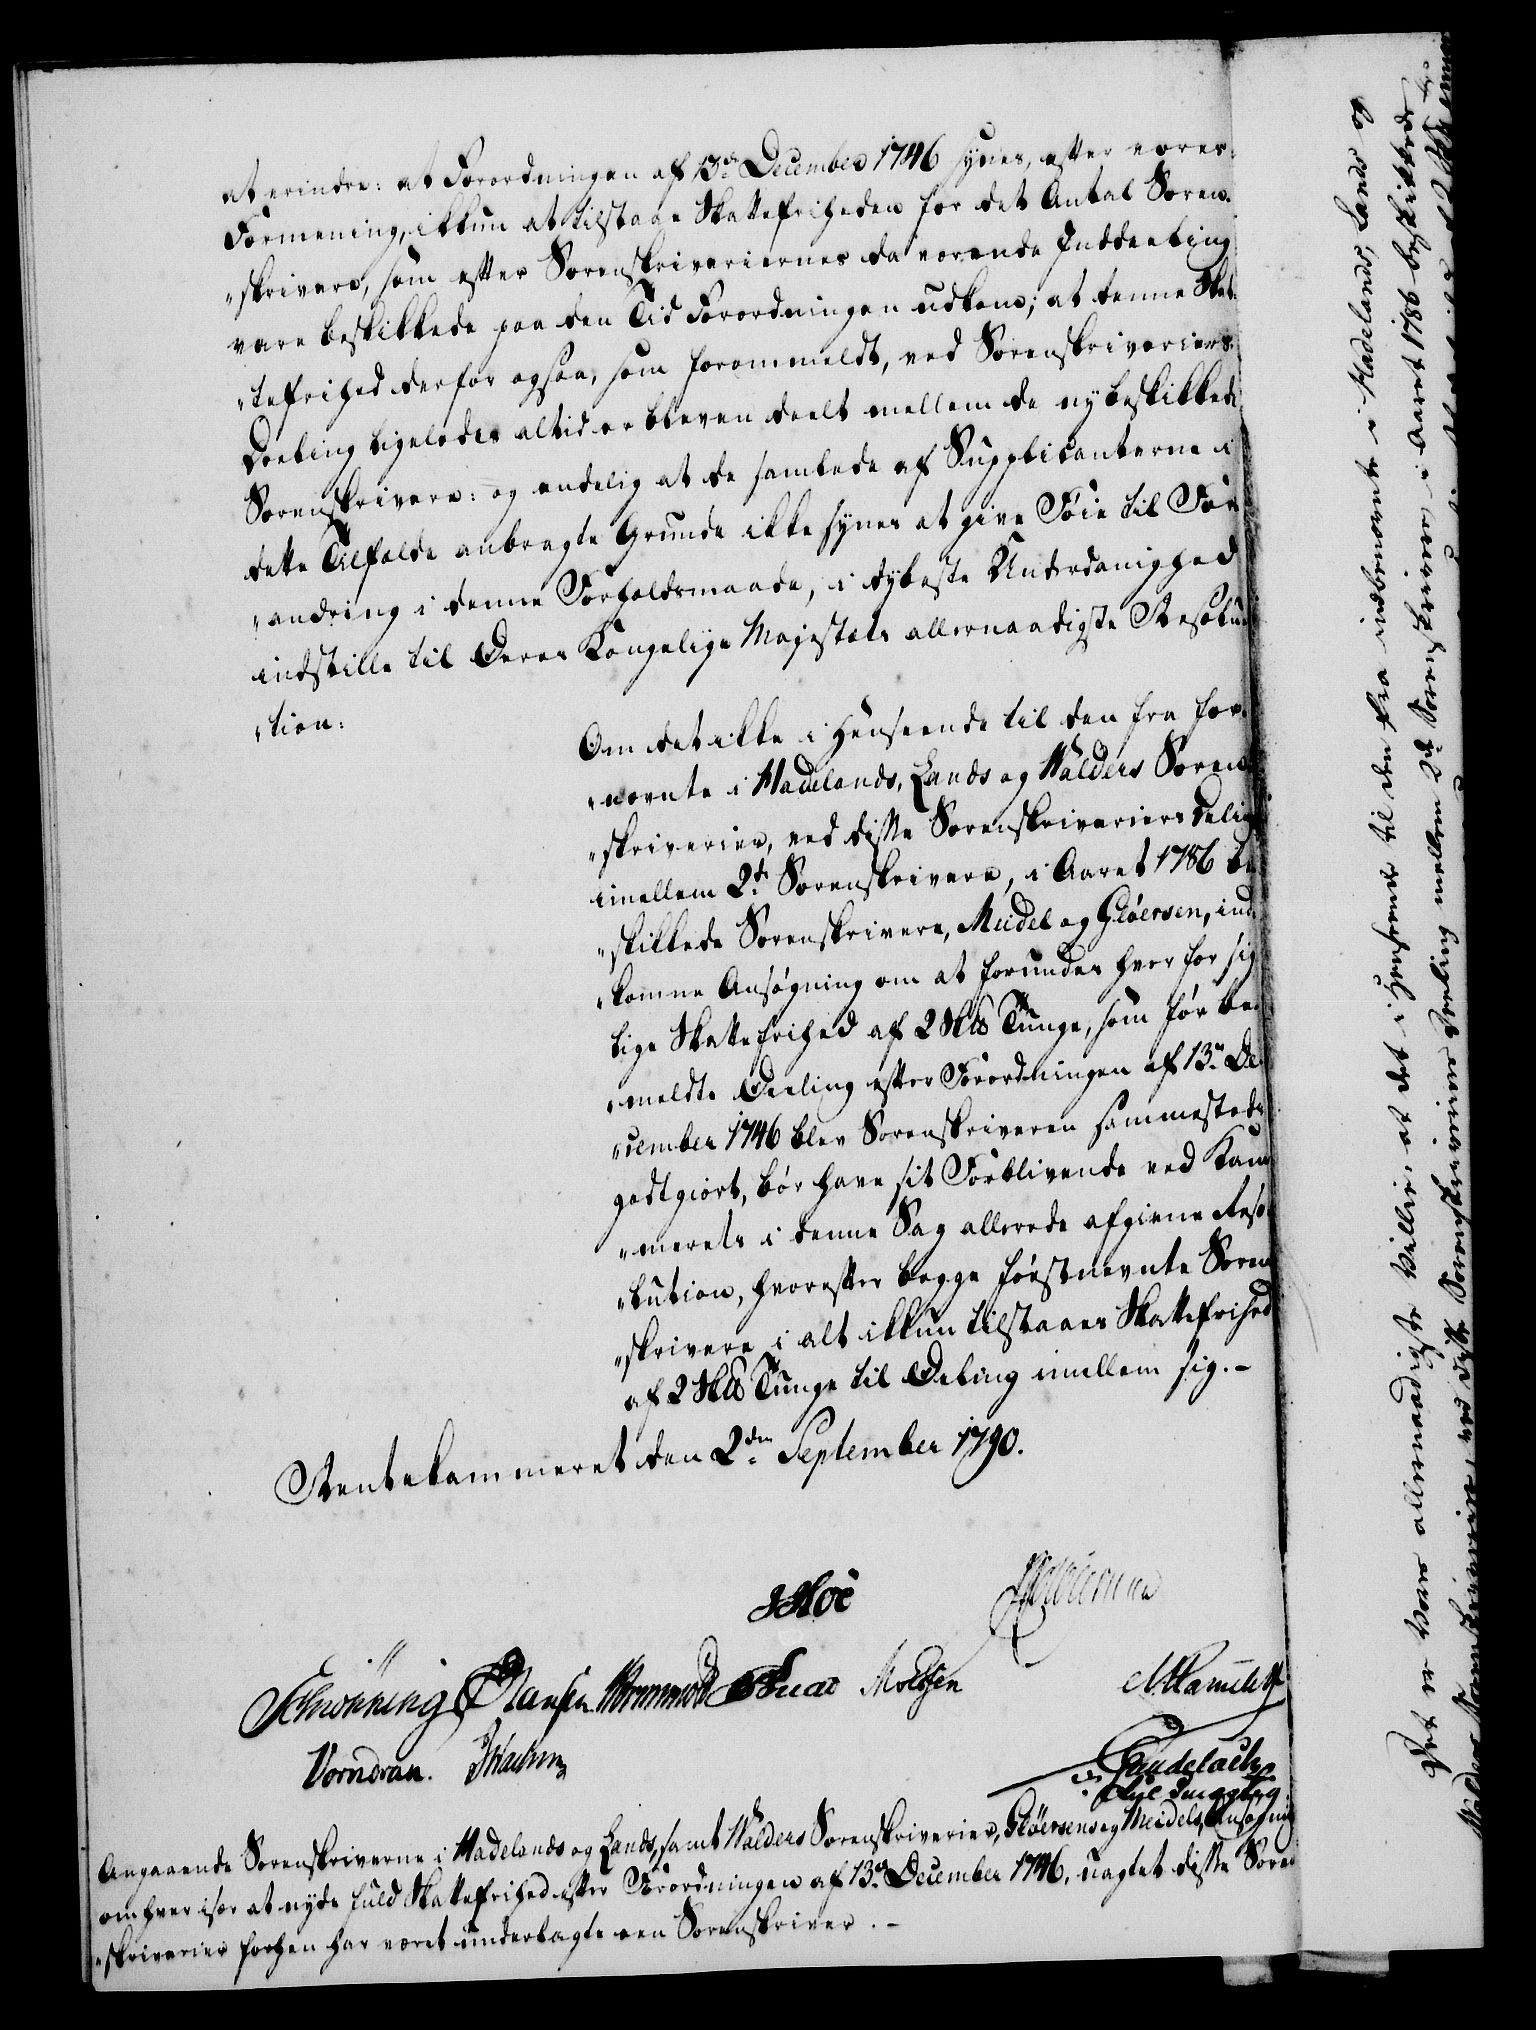 at erindre: at Forordningen af 13de December 1746 synes, efter vores
Formening, ikkun at tilstaae Skattefriheden for det Antal Soren-
"skrivere, som efter Sorenskriveriernes da værende Inddeeling
vare beskikkede paa den Tid Forordningen udkom; at denne Skat-
"tefrihed derfor ogsaa, som forommeldt, ved Sorenskriveriers
Deeling ligeledes altid er bleven deelt mellem de nybeskikkede
Sorenskrivere: og endelig at de samtlede af Supplicanterne i
dette Tilfælde anbragte Grunde ikke synes at give Føie til For-
"andring i denne Forholdsmaade, i dybeste Underdanighed
indstille til Deres Kongelige Majestæts allernaadigste Resolu-
"tion:
Om det ikke i Henseende til den fra for-
"nevnte i Hadelands, Lands og Walders Soren-
"skriverier, ved disse Sorenskriveriers Deling
imellem 2de Sorenskrivere, i Aaret 1786 be-
"skikkede Sorenskrivere, Meidel og Gløersen, ind-
"komne Ansøgning om at forundes hver for sig
lige Skattefrihed af 2 Sk℔ Tunge, som før be-
"meldte Deeling efter Forordningen af 13de De-
"cember 1746 blev Sorenskriveren sammesteds
godtgiort, bør have sit Forblivende ved Kam-
"merets i denne Sag allerede afgivne Reso-
"lution, hvorefter begge førstnevnte Soren-
"skrivere i alt ikkun tilstaaes Skattefrihed
af 2 Sk℔ Tunge til Deling imellem sig. -
Rentekammeret den 2den September 1790.
Schønning Hansen Wormskiold Moldsen
Vorndran.
Angaaende Sorenskriverne i Hadelands og Lands, samt Walders Sorenskriverier, Gløersens og Meidels, Ansøgning
om hver især at nyde fuld Skattefrihed efter Forordningen af 13de December 1746, uagtet disse Soren-
"skriverier forhen har været underlagte een Sorenskriver. -
Det er Vores allernaadigste Villie, at det i Henseende til den fra indbenævnte i Hadelands, Lands og
Walders Sorenskriverier, ved disse Sorenskriveriers Deeling mellem 2de Sorenskrivere, i Aaret 1786 beskikkede